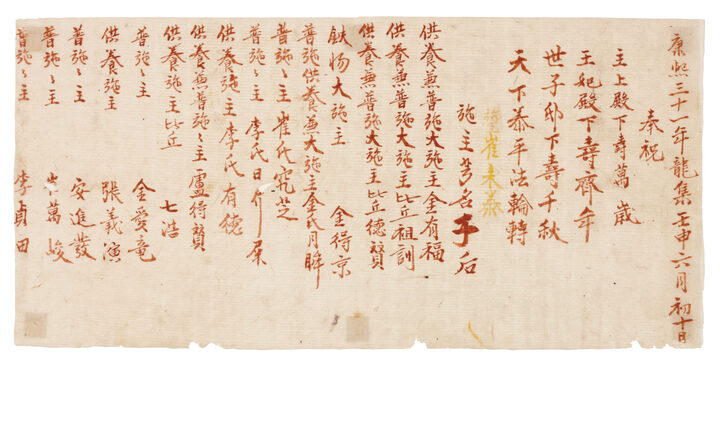 康熙三十一年龍集壬申六月初十日
奉祝
主上殿下壽萬歲
王妃殿下壽齊年
世子邸下壽千秋
天下泰平法輪轉
崔
施主芳名于后
供養兼普施大施主金有福
供養兼普施大施主比丘祖訓
供養兼普施大施主比丘德贊
大施主 金得京
普施供養兼大施主金氏月
普施〻主 崔氏 芝
普施〻主 李氏日
供養施主李氏有德
供養兼普施〻主盧得贊
供養施主比丘 七浩
普施〻主 金愛竜
供養施主 張義演
普施〻主 安進發
普施〻主 萬峻
普施〻主 李貞田